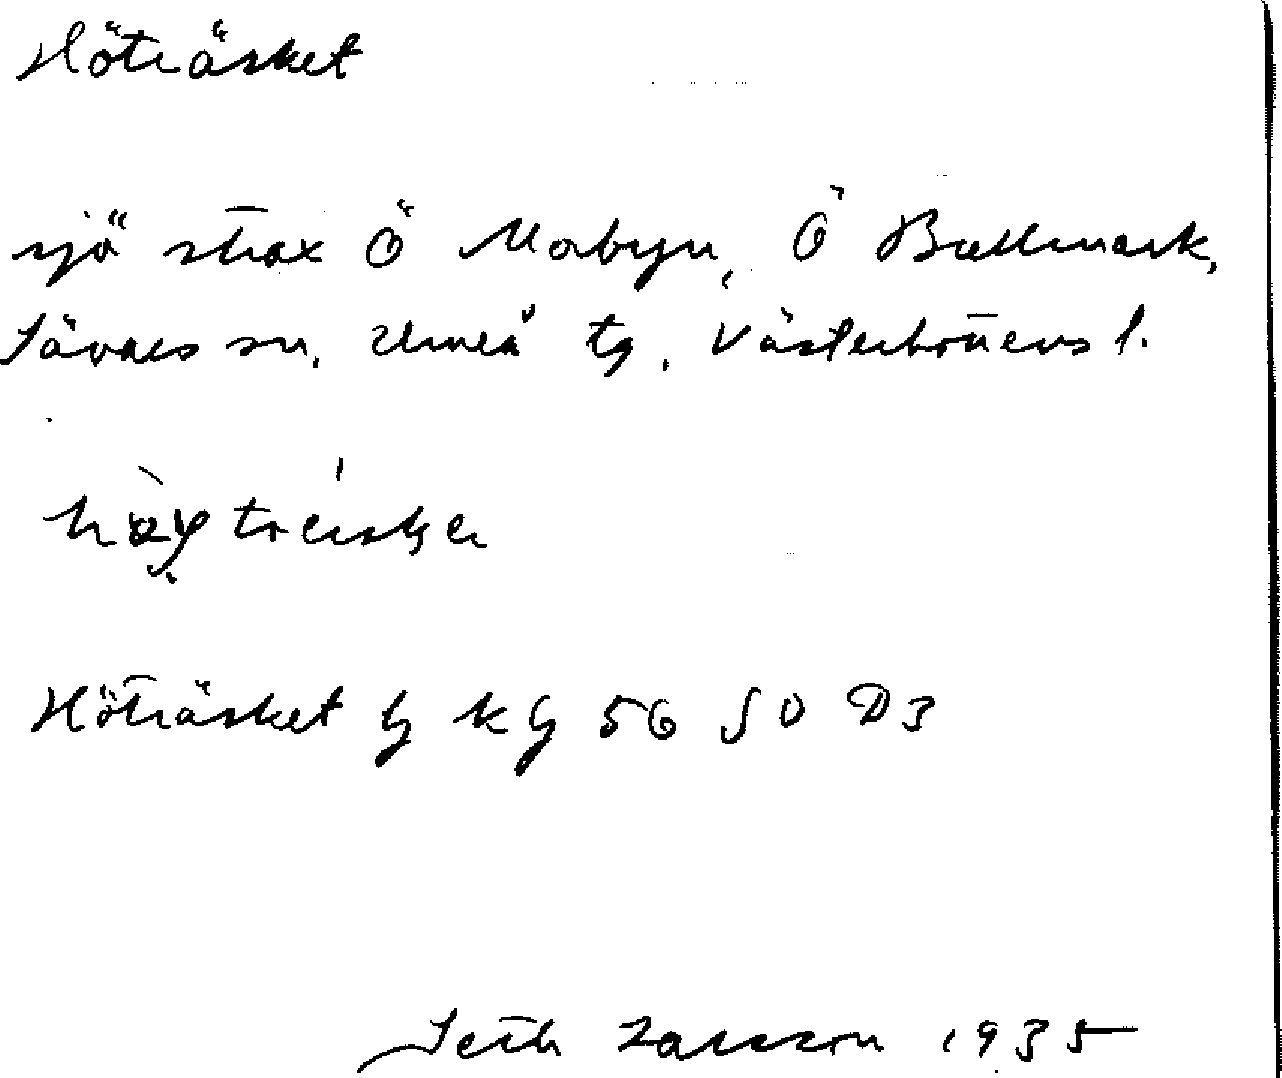 Höträsket
sjö strax Ö Mobyn, Ö Bullmark,
Sävars sn, Umeå tg, Västerbottens l.
Höträsket G kg 56 SO D3
Seth Larsson 1935